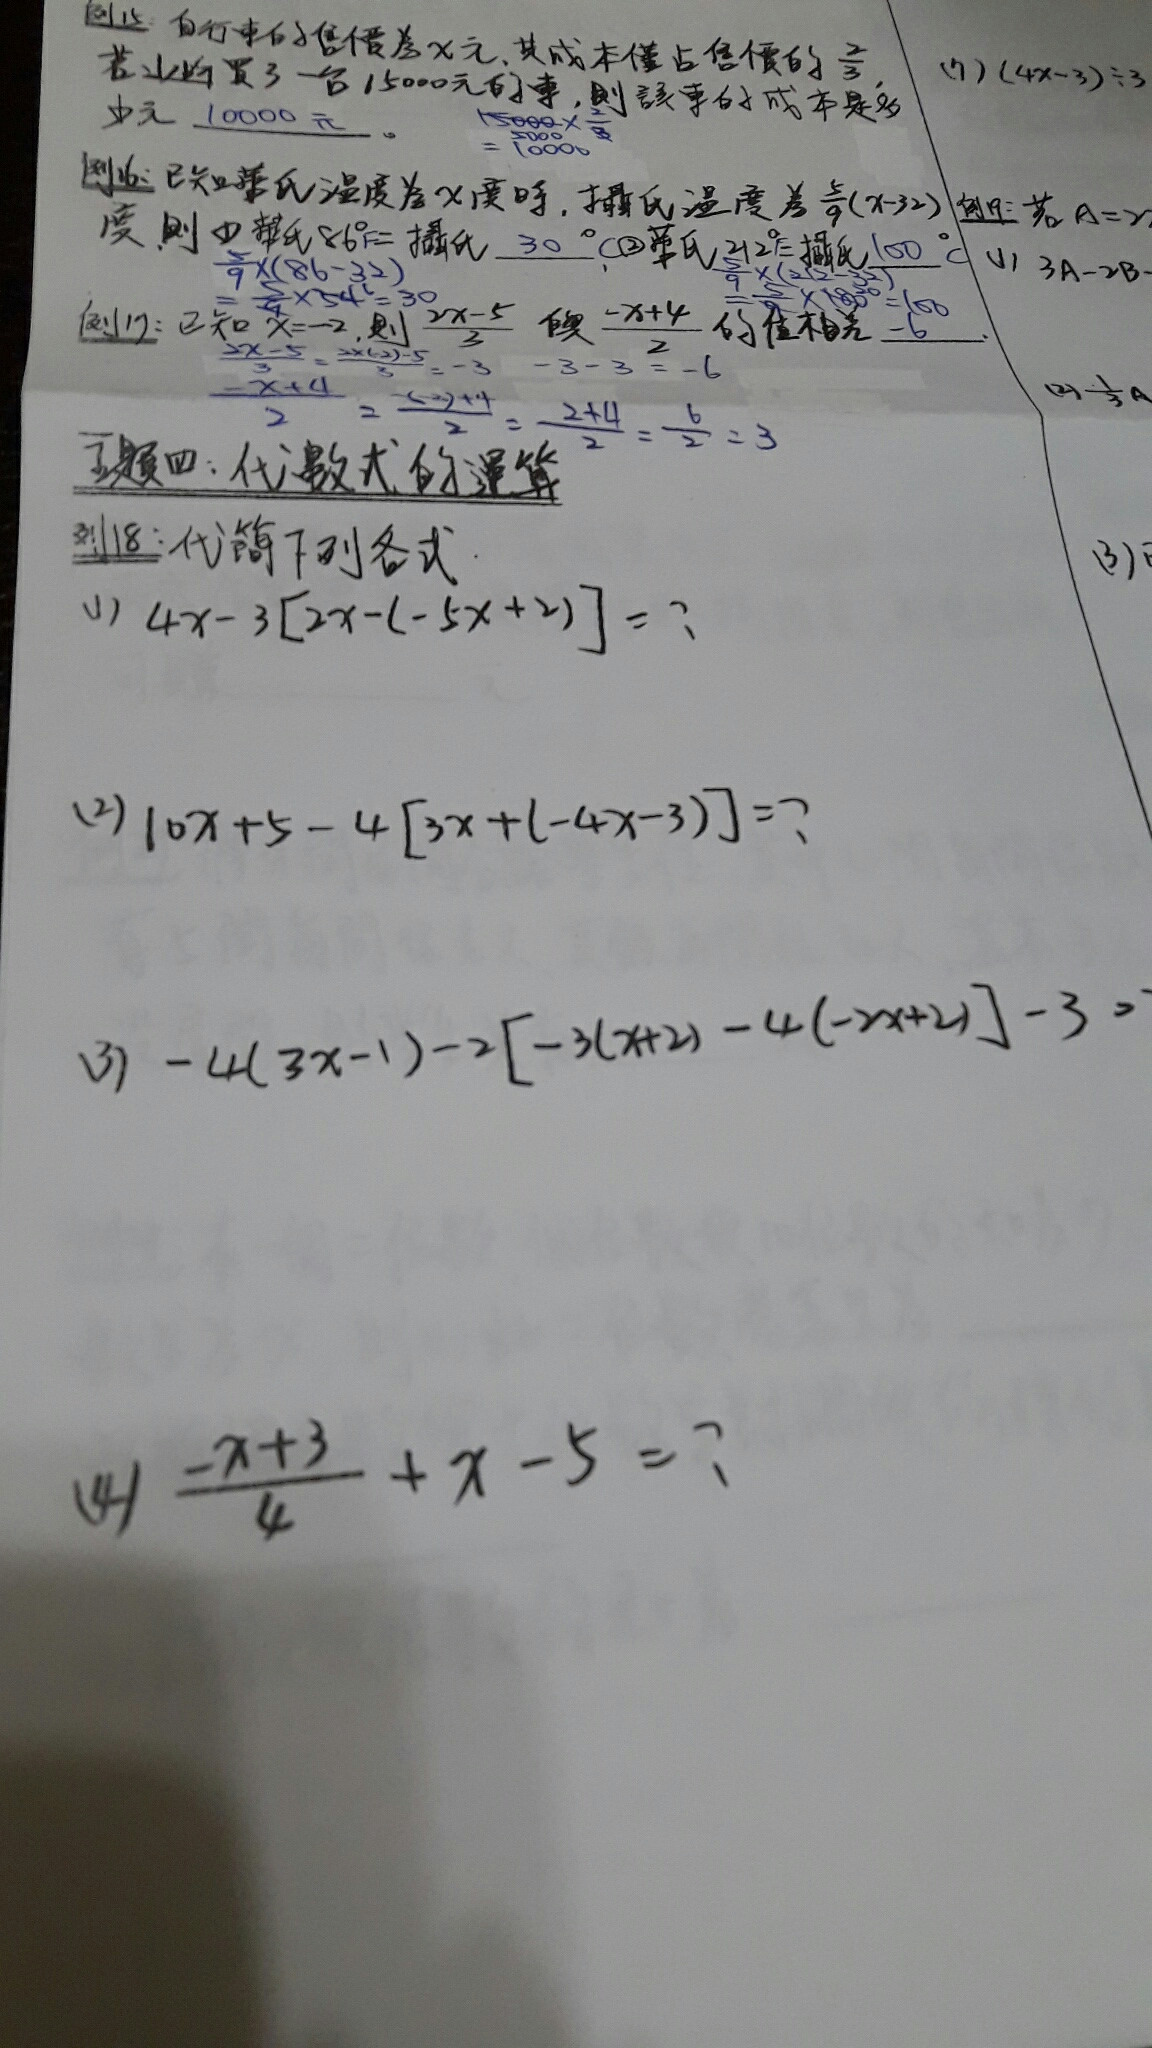 例15: 自行車的售價為x元,其成本僅占售價的2/3,
若小明買了一台15000元的車,則該車的成本是多
少元 10000元。
15000×2/3
5000
=10000
例16: 已知華氏溫度為x度時,攝氏溫度為5/9(x-32)
度,則(1)華氏86°F=攝氏 30 °C,(2)華氏212°F=攝氏 100 °C
5/9×(86-32)
=5/9×54=30
5/9×(212-32)
=5/9×180=100
例17: 已知x=-2,則(2x-5)/3與(-x+4)/2的值相差 -6 .
(2x-5)/3=(2×(-2)-5)/3=-3 -3-3=-6
(-x+4)/2=(-(-2)+4)/2=(2+4)/2=6/2=3
主題四:代數式的運算
例18:代簡下列各式.
(1) 4x-3[2x-(-5x+2)]=?
(2) 10x+5-4[3x+(-4x-3)]=?
(3) -4(3x-1)-2[-3(x+2)-4(-2x+2)]-3=?
(4) (-x+3)/4+x-5=?
(7) (4x-3)÷3
例19: 若A=2
(1) 3A-2B-
(2) -1/3A
(3)